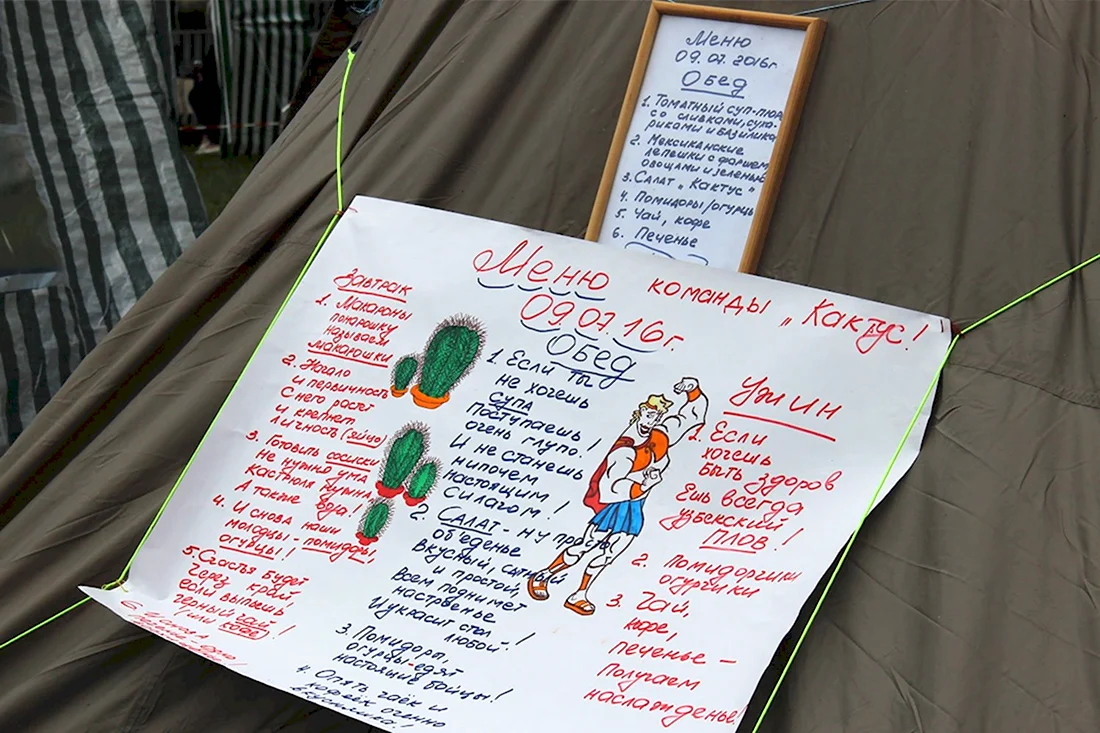 Меню
09.07.2016г.
Обед
1. Томатный суп-пюре
со сливками, суха-
риками и базилика
2. Мексиканские
лепешки с фаршем,
овощами и зеленью
3. Салат „Кактус"
4. Помидоры/огурцы
5. Чай, кофе
6. Печенье
Меню команды „Кактус!"
09.07.16г.
Завтрак
1. Макароны
понарошку
называем
макарошки
2. Начало
и первичность
С него растёт
и крепнет
личность (яйцо)
3. Готовить сосиски
Не нужно ума
Кастрюля нужна
А также вода!
4. И снова наши
молодцы - помидоры,
огурцы!
5. Счастья будет
Через край
если выпьешь
черный чай!
(или кофе)
6.
Обед
1. Если ты
не хочешь
супа
Поступаешь
очень глупо!
И не станешь
нипочем
настоящим
силачом!
2. Салат - ну просто
объеденье
Вкусный, сытный
и простой,
Всем поднимет
настроенье
И украсит стол
любой -!
3. Помидоры,
огурцы-едят
настоящие бойцы!
4. Опять чаёк и
кофеёк оченно
Ужин
1. Если
хочешь
быть здоров
Ешь всегда
узбекский
Плов!
2. Помидорчики
огурчики
3. Чай,
кофе,
печенье -
Получаем
наслажденье!